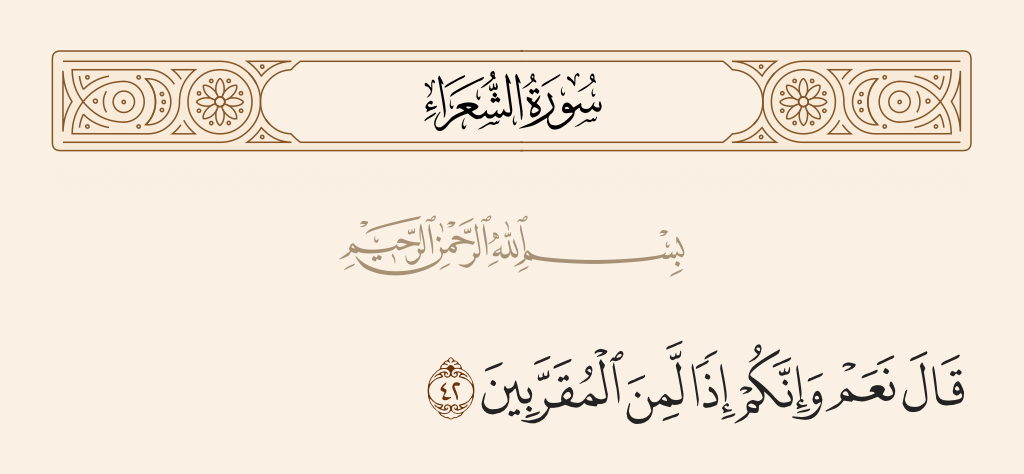 سُورَةُ الشُّعَرَاءِ
بِسْمِ ٱللَّهِ ٱلرَّحْمَٰنِ ٱلرَّحِيمِ
قَالَ نَعَمْ وَإِنَّكُمْ إِذًا لَّمِنَ ٱلْمُقَرَّبِينَ ٤٢